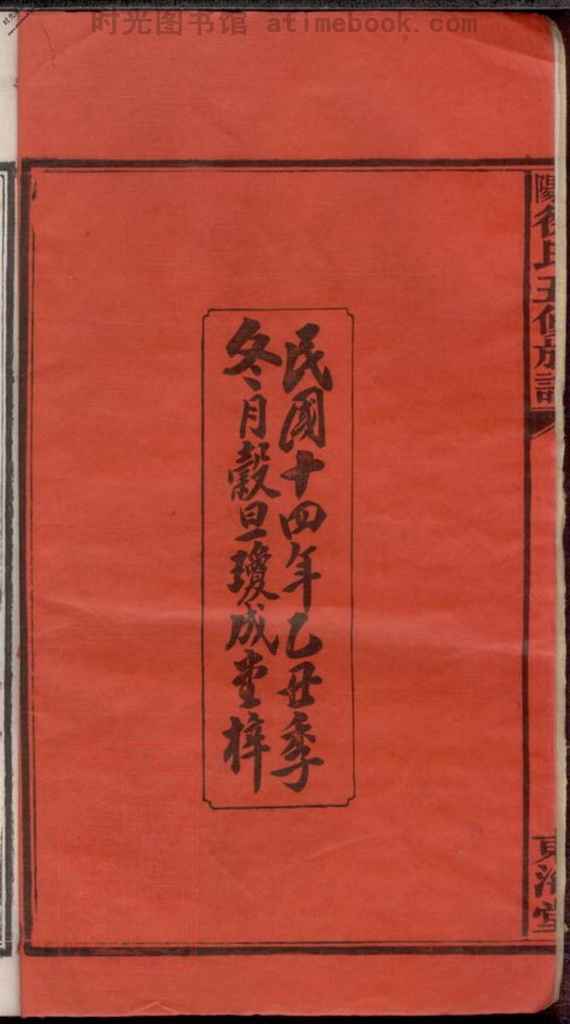 时光图书馆 atimebook.com
陽徐氏五修族譜
民國十四年乙丑季
冬月穀旦瓊成堂梓
東海堂